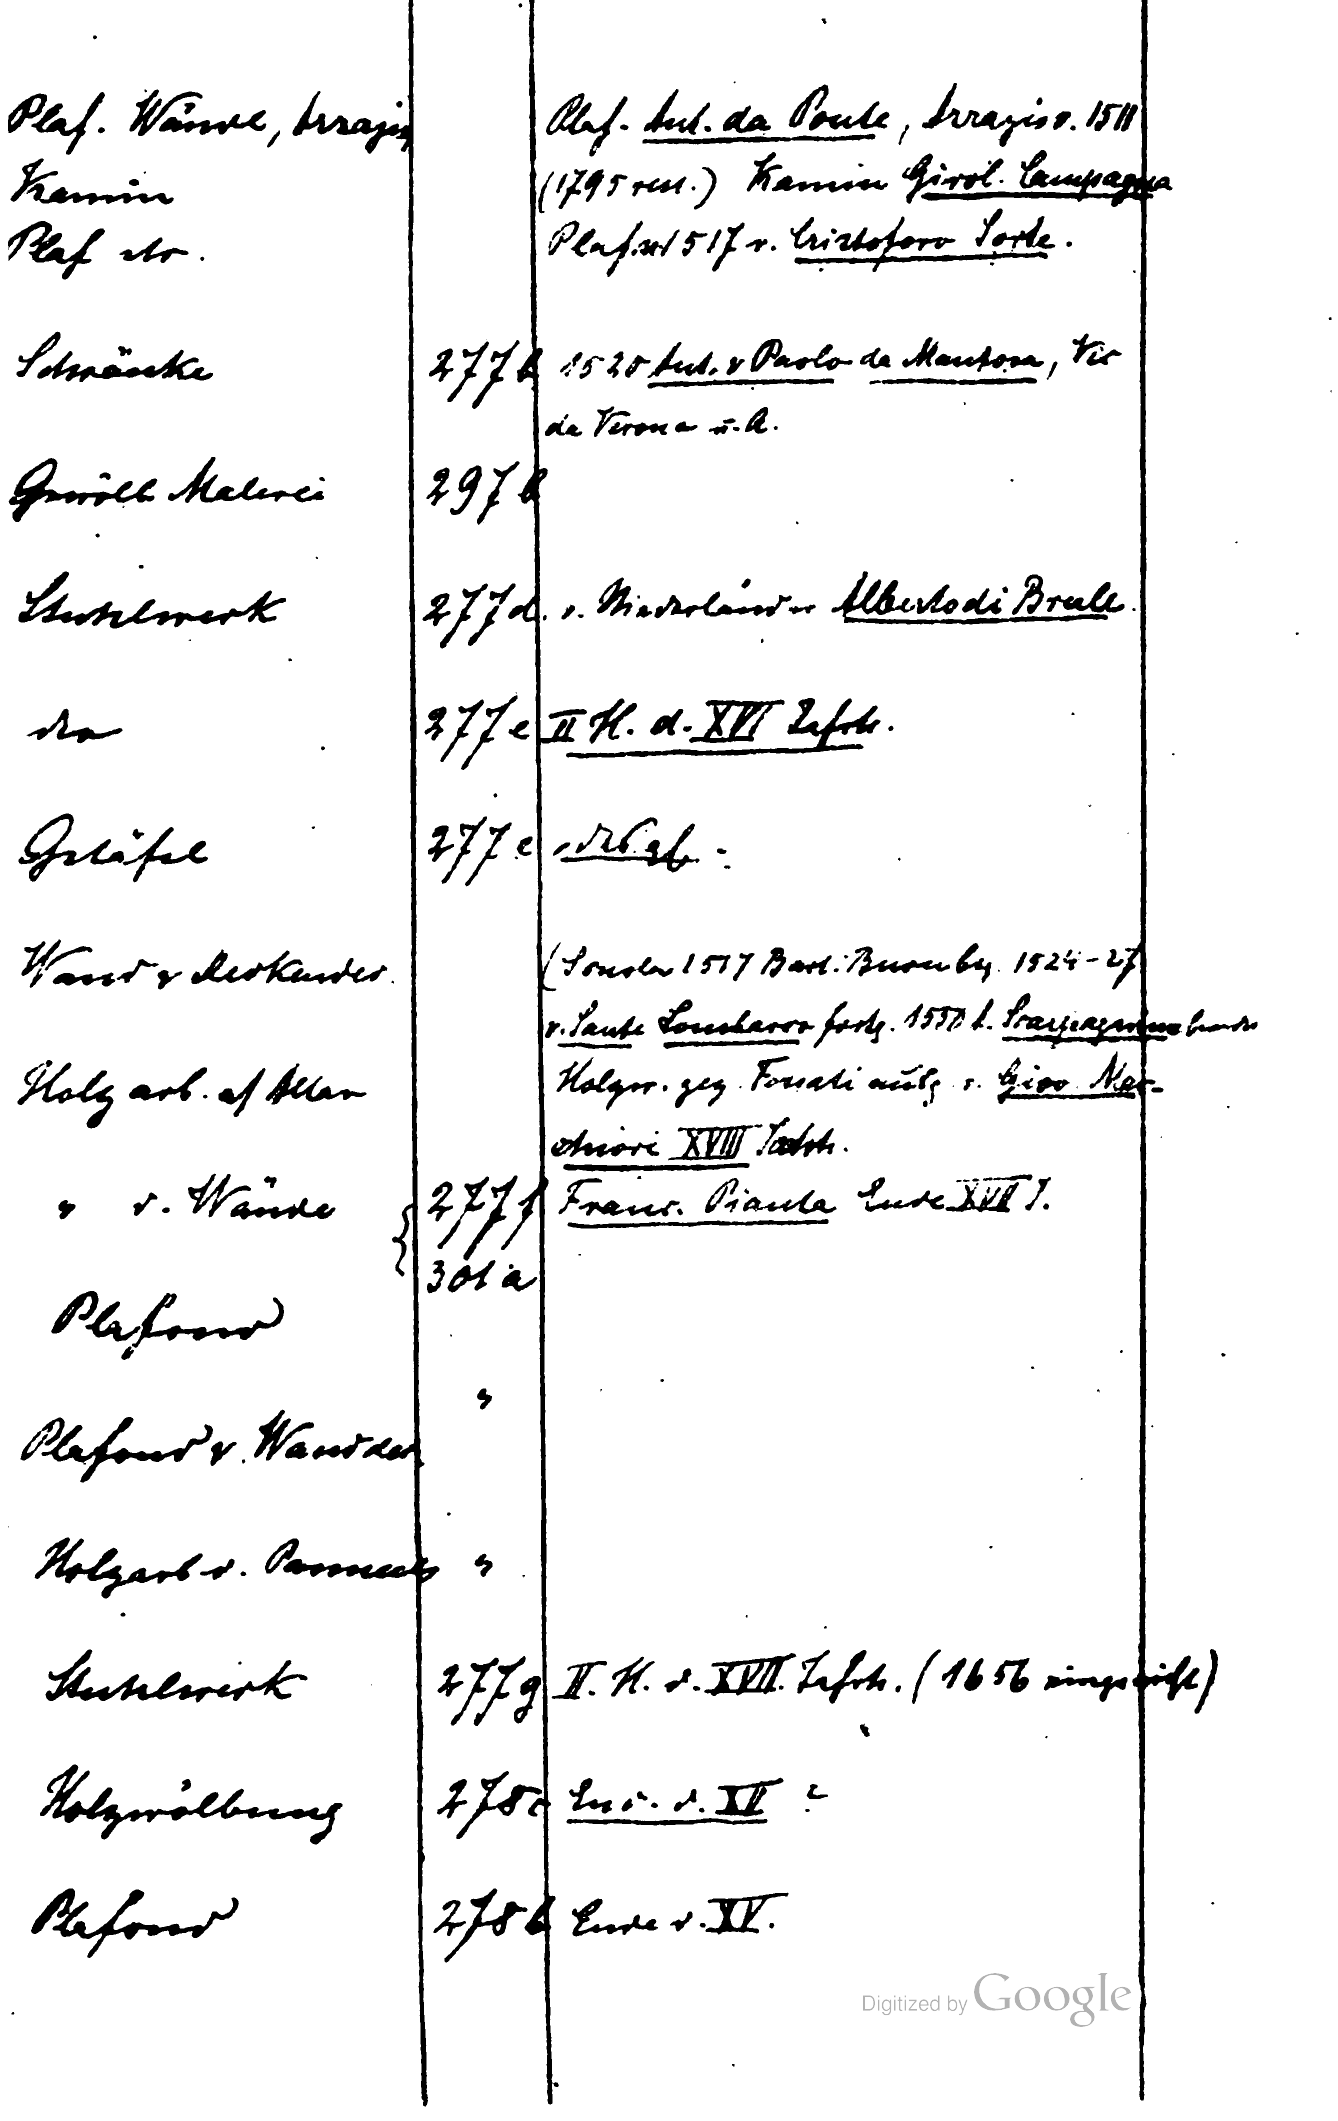 Plaf. Wände, Arrazis Plaf. Ant. da Ponte, Arrazis v. 15
Kamin (1795 rest.) Kamin Girol. Campagna
Plaf etc. Plaf. 1517 v. Cristoforo Sorte.
Schränke 277b 1520 Ant. & Paolo da Mantova, Vic
da Verona u. A.
Gewölb Malerei 297b
Stuhlwerk 277d. v. Niederländer Alberto di Brule.
dto 277e II H. d. XVI Jahrh.
Getäfel 277e
Wand & (Scuola 1517 Bart. Buon beg. 1524-27
v. Sante Lombardo fortg. 1550 d. Scarpagnino
Holzarb. a/ Altar Holzw. geg. Fossati v. Giov Mar-
chiori XVIII Jahrh.
" d. Wände 277f Franc. Pianta Ende XVII J.
301a
Plafond
"
Plafond & Wand
Holzarb d. "
Stuhlwerk 277g II. H. d. XVII. Jahrh. (1656
Holzwölbung 278c End. d. XV ?
Plafond 278b Ende d. XV.
Digitized by Google